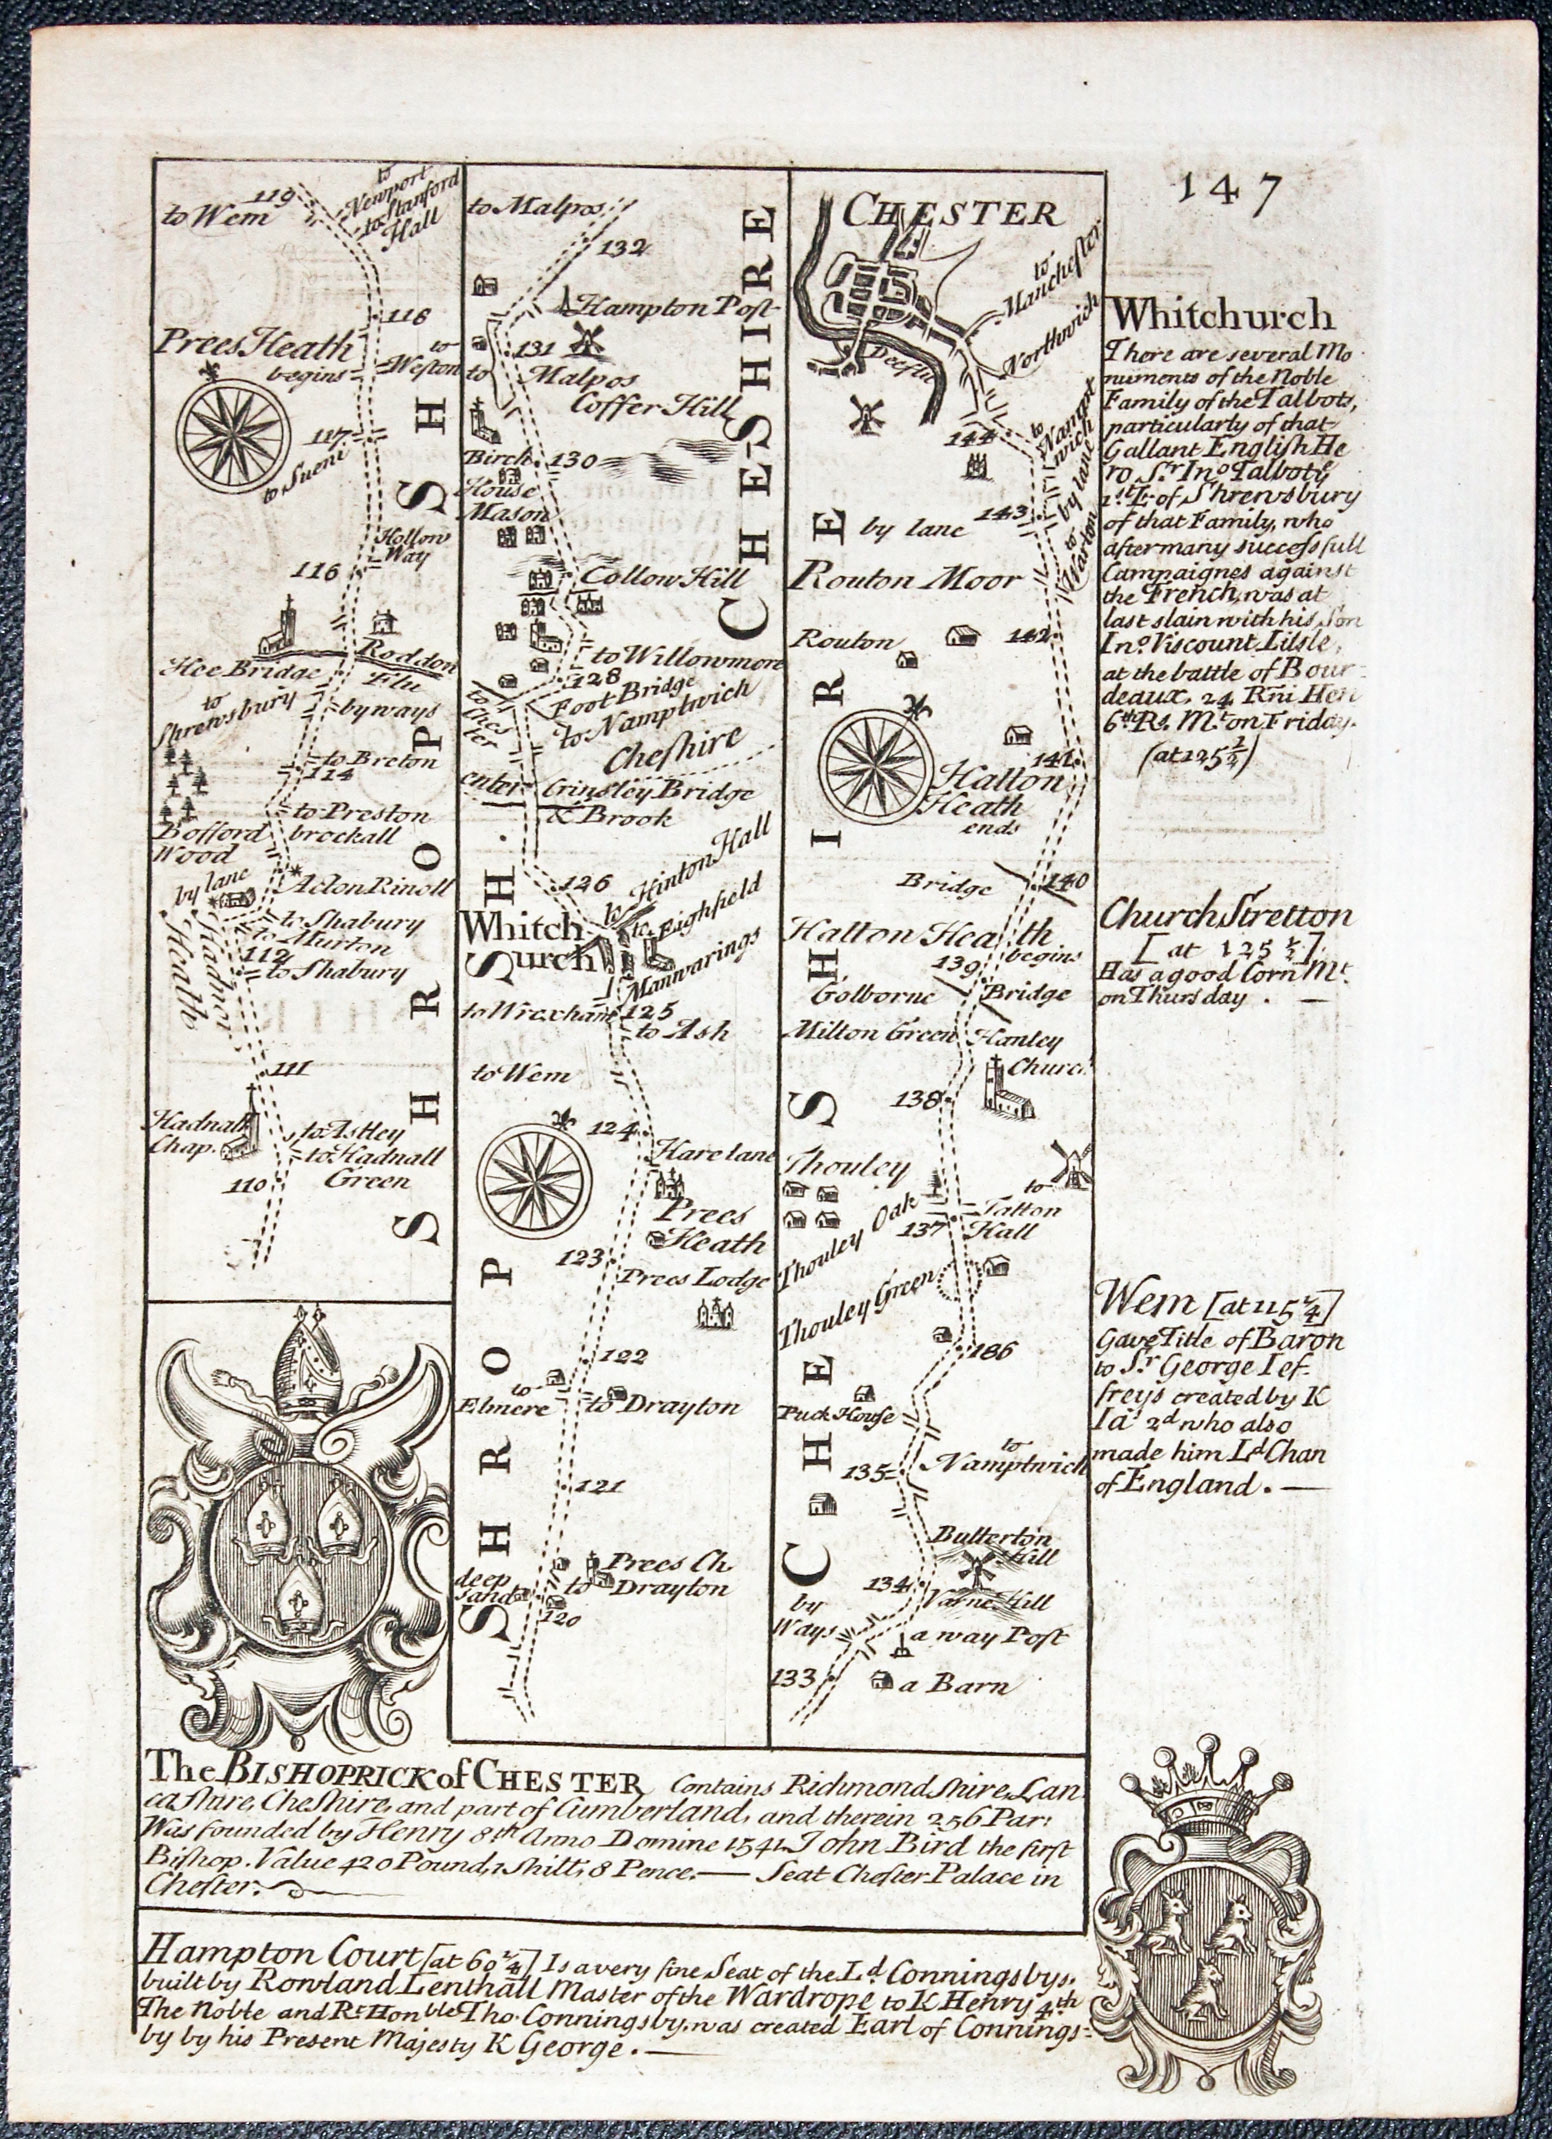 147
119
to Wem
to
Newport
to Stanford
Hall
118
Prees Heath
begins
to
Weston
117
to Sueni
Hollow
Way
116
Roddon
Flu
Hee Bridge
to
Shrewsbury
byways
to Breton
114
to Preston
brockall
Bofford
Wood
by lane
Acton Rinoll
to Shabury
to Murton
112
to Shabury
Hadnor
Heath
111
Hadnall
Chap.
to Astley
to Hadnall
Green
110
SHROPSH
to Malpos
132
Hampton Post
131
to
Malpos
Coffer Hill
Birch
130
House
Mason
Collow Hill
to Willowmore
128
Foot Bridge
to Namptwich
to
Ches
ter
Cheshire
enter
Grinsley Bridge
& Brook
126
to Hinton Hall
to Eighfield
Whitch
urch
Manwarings
to Wrexham
125
to Ash
to Wem
124
Harelane
Prees
Heath
123
Prees Lodge
122
to
Elmere
to Drayton
121
Prees Ch
deep
sand
to Drayton
120
SHROPSH.
CHESHIRE
CHESTER
to
Manchester
Northwich
Dee flu
144
to
Namptwich
by lane
143
by lane
to
Warton
Routon Moor
Routon
142
141
Hatton
Heath
ends
Bridge
140
Hatton Heath
begins
139
Golborne
Bridge
Milton Green
Hanley
Church
138
Thouley
to
Tatton
Hall
Thouley Oak
137
Thouley Green
186
Puck House
to
Namptwich
135
Butterton
Hill
134
Varne Hill
by
Ways
a way Post
133
a Barn
CHESHIRE
Whitchurch
There are several Mo
numents of the Noble
Family of the Talbots,
particularly of that
Gallant English He
ro Sr. Ino. Talbot ye
1st E. of Shrewsbury
of that Family, who
after many successfull
Campaignes against
the French, was at
last slain with his Son
Ino. Viscount Lilsle,
at the battle of Bour
deaux, 24 Rni Hen
6th Rs. Mt. on Friday.
(at 125 1/2)
Church Stretton
[at 125 1/2]
Has a good Corn Mt.
on Thursday. —
Wem [at 115 1/4]
Gave Title of Baron
to Sr. George Ief-
freys created by K
Ia 2d who also
made him Ld Chan
of England. —
The BISHOPRICK of CHESTER Contains Richmondshire, Lan
cashire, Cheshire, and part of Cumberland, and therein 256 Par:
Was founded by Henry 8th Anno Domine 1541 John Bird the first
Bishop. Value 420 Pound, 1 Shill, 8 Pence. — Seat Chester Palace in
Chester.
Hampton Court [at 60 1/4] Is a very fine Seat of the Ld. Conningsbys.
built by Rowland Lenthall Master of the Wardrope to K Henry 4th
The Noble and Rt. Honble Tho. Conningsby, was created Earl of Connings=
by by his Present Majesty K George. —